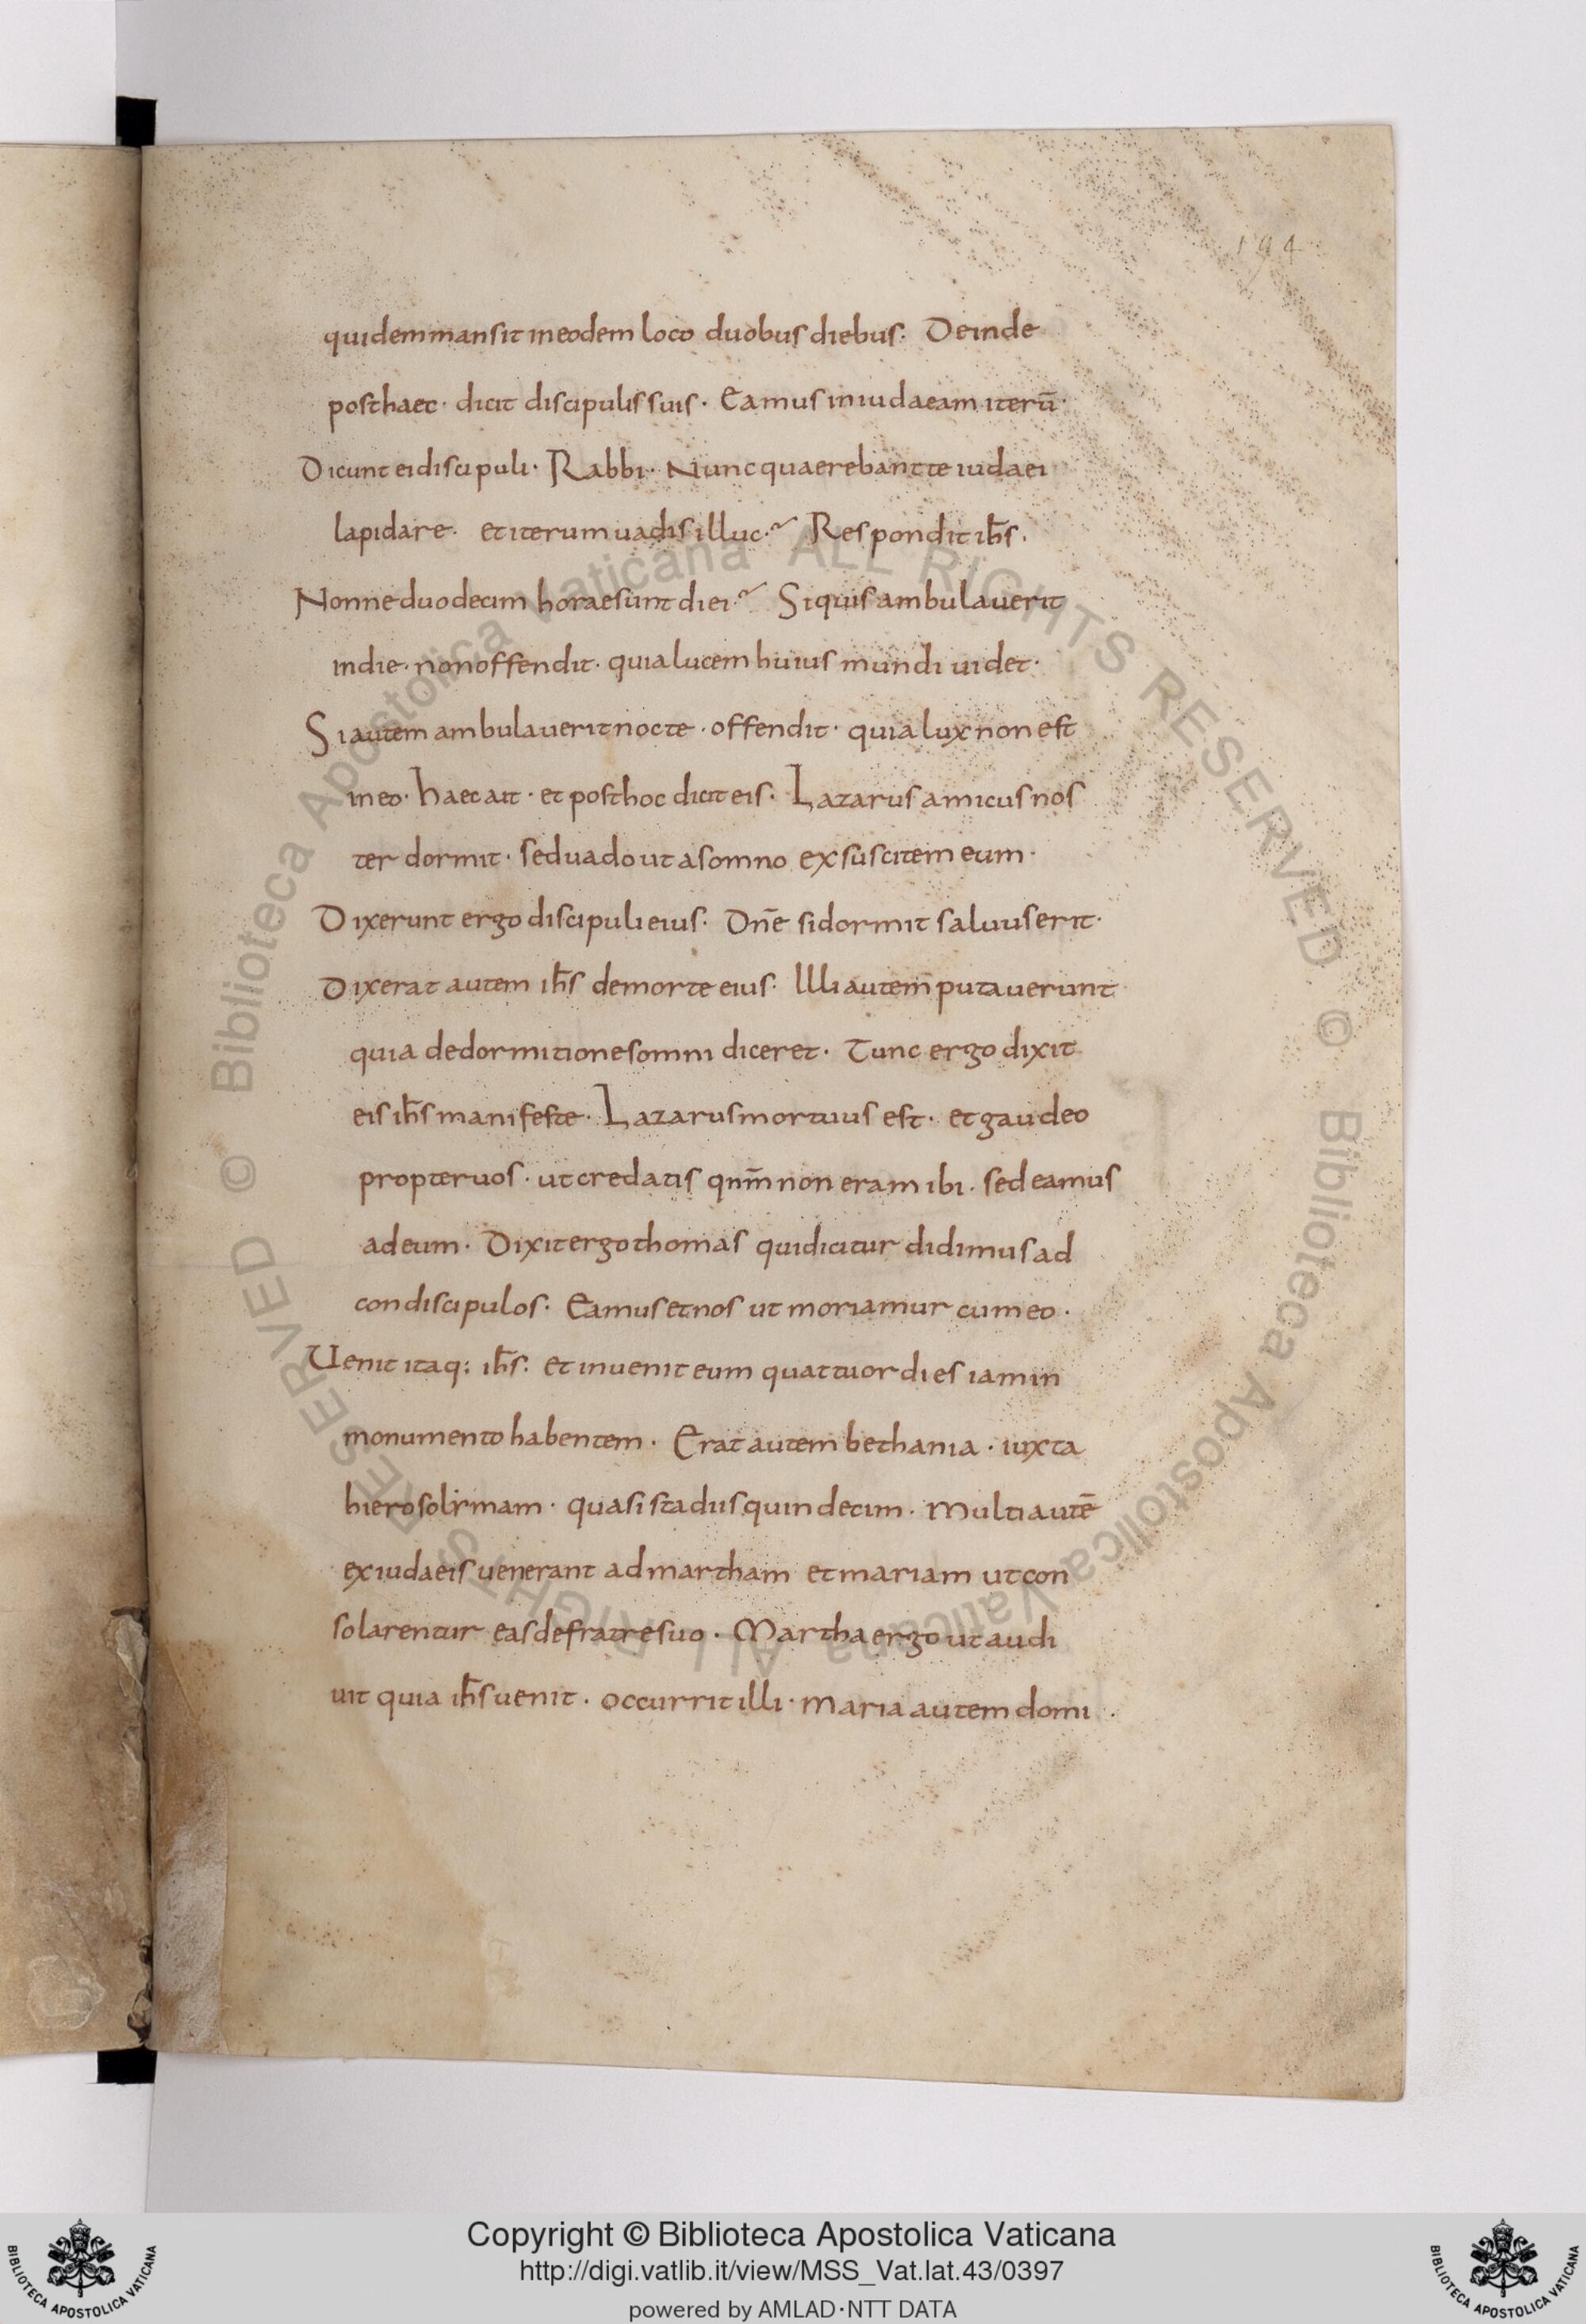 194
quidem mansit in eodem loco duobus diebus· Deinde
post haec· dicit discipulis suis· Eamus in iudaeam iterū·
Dicunt ei discipuli· Rabbi· Nunc quaerebant te iudaei
lapidare· et iterum uadis illuc·~ Respondit ih̄s·
Nonne duodecim horae sunt diei·~ Si quis ambulauerit
in die· non offendit· quia lucem huius mundi uidet·
Si autem ambulauerit nocte· offendit· quia lux non est
in eo· Haec ait· et post hoc dicit eis· Lazarus amicus nos
ter dormit· sed uado ut a somno exsuscitem eum·
Dixerunt ergo discipuli eius· Dn̄e si dormit saluus erit·
Dixerat autem ih̄s de morte eius· Illi autem putauerunt
quia de dormitione somni diceret· Tunc ergo dixit
eis ih̄s manifeste· Lazarus mortuus est· et gaudeo
propter uos· ut credatis qnm̄ non eram ibi· sed eamus
ad eum· Dixit ergo thomas qui dicitur didimus ad
condiscipulos· Eamus et nos ut moriamur cum eo·
Uenit itaq: ih̄s· et inuenit eum quattuor dies iam in
monumento habentem· Erat autem bethania· iuxta
hierosolimam· quasi stadiis quindecim· Multi autē
ex iudaeis uenerant ad martham et mariam ut con
solarentur eas de fratre suo· Martha ergo ut audi
uit quia ih̄s uenit· occurrit illi· Maria autem domi·
© Biblioteca Apostolica Vaticana ALL RIGHTS RESERVED
© Biblioteca Apostolica Vaticana ALL RIGHTS RESERVED
Copyright © Biblioteca Apostolica Vaticana
http://digi.vatlib.it/view/MSS_Vat.lat.43/0397
powered by AMLAD·NTT DATA
BIBLIOTECA APOSTOLICA VATICANA
BIBLIOTECA APOSTOLICA VATICANA